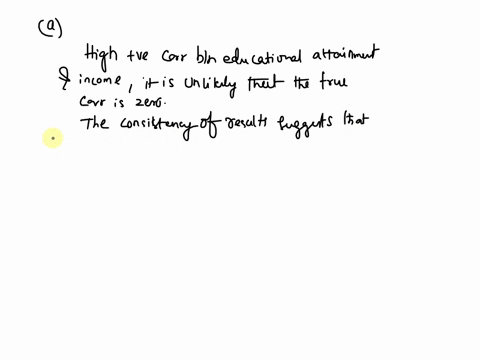 (a)
High +ve Corr b/n educational attainment
& income, it is unlikely that the true
Corr is zero.
The consistency of results suggests that